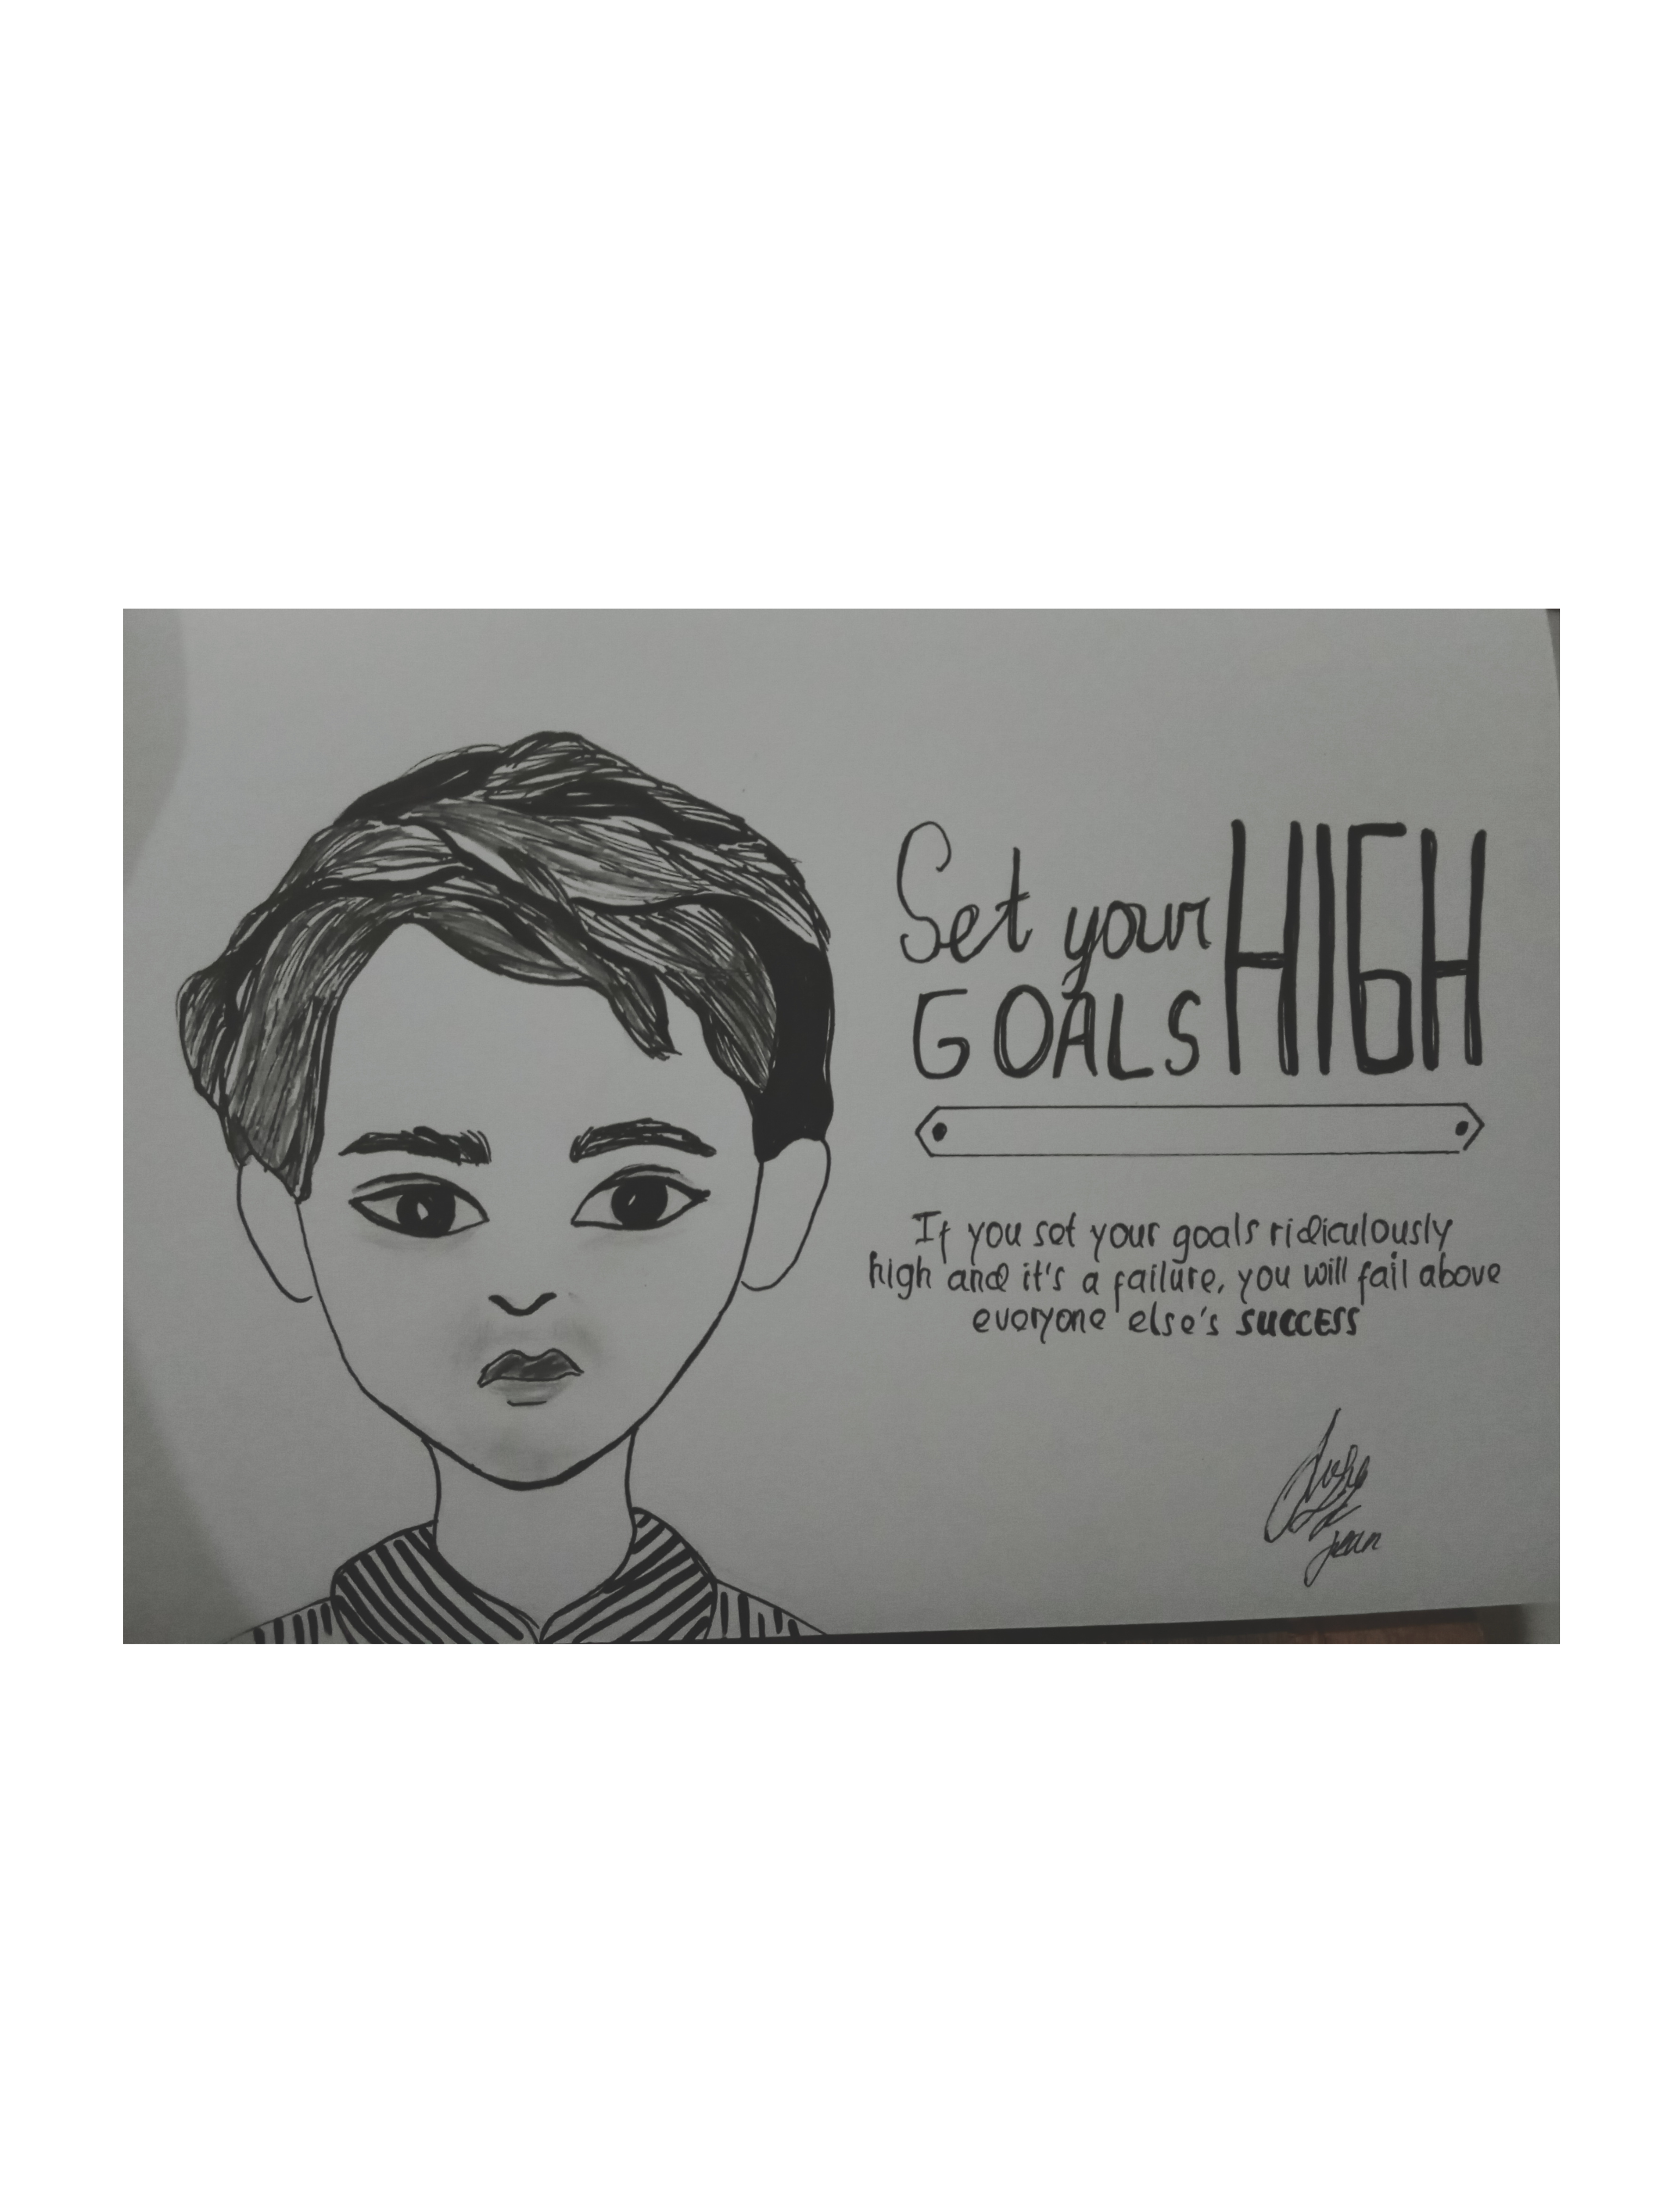 Set your HIGH
GOALS
If you set your goals ridiculously
high and it's a failure, you will fail above
everyone else's SUCCESS
jean